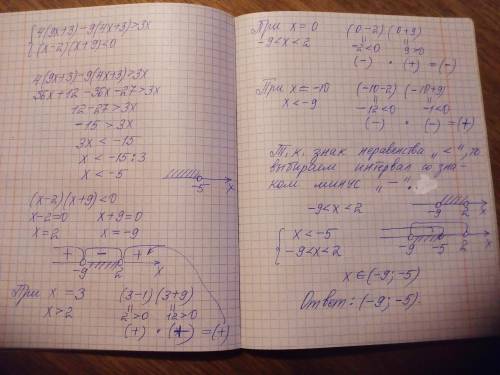 { 4(9x+3)-9(4x+3)>3x
(x-2)(x+9)<0
4(9x+3)-9(4x+3)>3x
36x+12-36x-27>3x
12-27>3x
-15>3x
3x<-15
x<-15:3
x<-5
-5 x
(x-2)(x+9)<0
x-2=0 x+9=0
x=2 x=-9
+ - +
-9 2 x
При x=3 (3-1)(3+9)
x>2 2>0 12>0
(+) • (+) =(+)
При x=0 (0-2)(0+9)
-9<x<2 -2<0 9>0
(-) • (+) =(-)
При x=-10 (-10-2)(-10+9)
x<-9 -12<0 -1<0
(-) • (-) =(+)
Т.к. знак неравенства „<", то
выбираем интервал со зна-
ком минус „-".
-9<x<2
-9 2 x
{ x<-5
-9<x<2
-9 -5 2 x
x∈(-9;-5)
Ответ: (-9;-5).